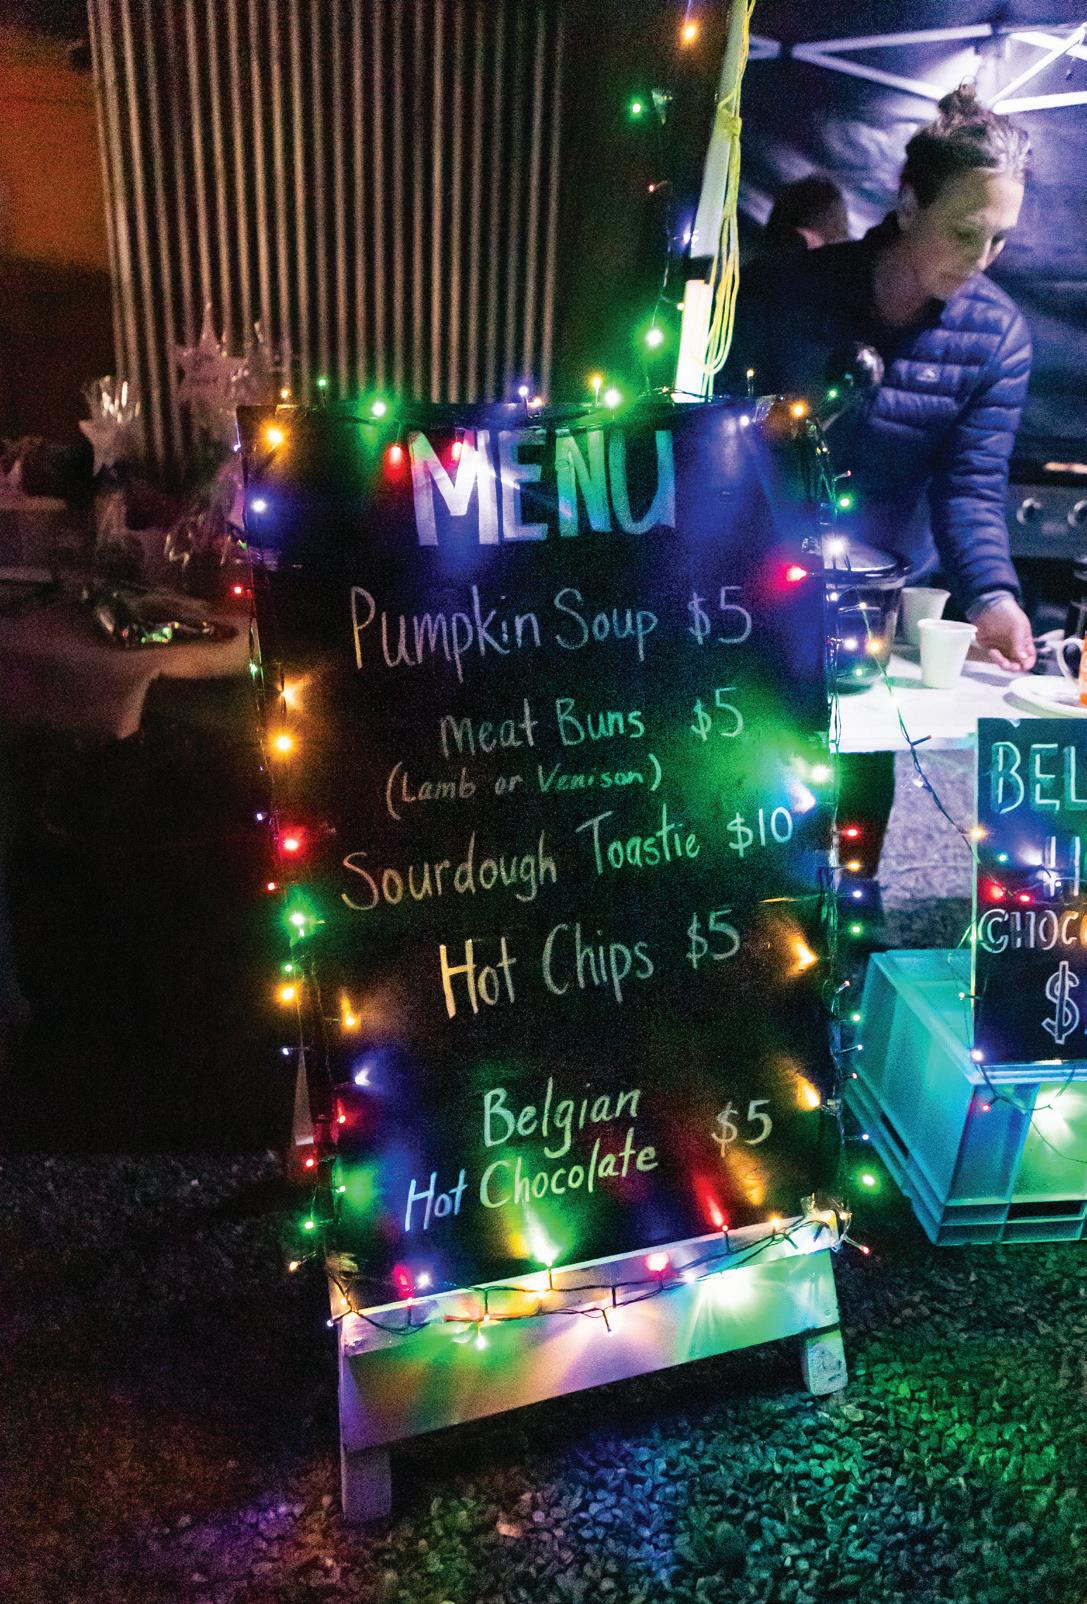 MENU
Pumpkin Soup $5
Meat Buns $5
(Lamb or Venison)
Sourdough Toastie $10
Hot Chips $5
Belgian
Hot Chocolate $5
BEL
CHOC
$